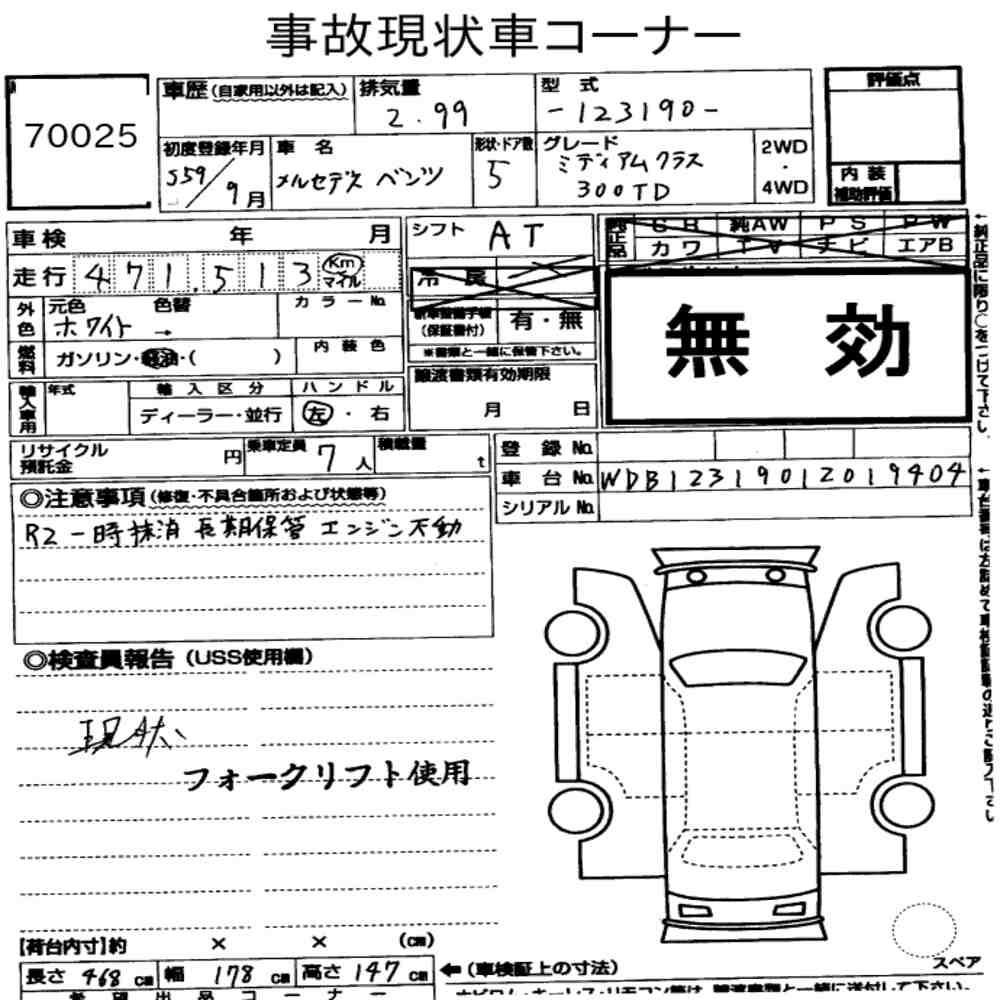 事故現状車コーナー
70025
車歴 (自家用以外は記入)
排気量
2.99
型式
-123190-
評価点
初度登録年月
S59/9月
車名
メルセデス ベンツ
形状・ドア数
5
グレード
ミディアムクラス
300TD
2WD
・
4WD
内装
補助評価
車検 年 月
シフト AT
純正品
SR 純AW PS PW
カワ TV ナビ エアB
走行 471,513 Km マイル
冷房
無効
外色
元色 色替 カラーNo.
ホワイト →
新車整備手帳
(保証書付)
有・無
※書類と一緒に保管下さい。
燃料
ガソリン・軽油・( )
内装色
譲渡書類有効期限
月 日
輸入車用
年式
輸入区分
ディーラー・並行
ハンドル
左・右
リサイクル
預託金
円
乗車定員
7人
積載量
t
登録No.
車台No. WDB12319012019404
シリアルNo.
◎注意事項(修復・不具合箇所および状態等)
R2一時抹消 長期保管 エンジン不動
◎検査員報告(USS使用欄)
現状
フォークリフト使用
【荷台内寸】約 × × (cm)
長さ 468 cm 幅 178 cm 高さ 147 cm
←(車検証上の寸法)
スペア
希望出品コーナー
←純正品に限り○をつけて下さい。